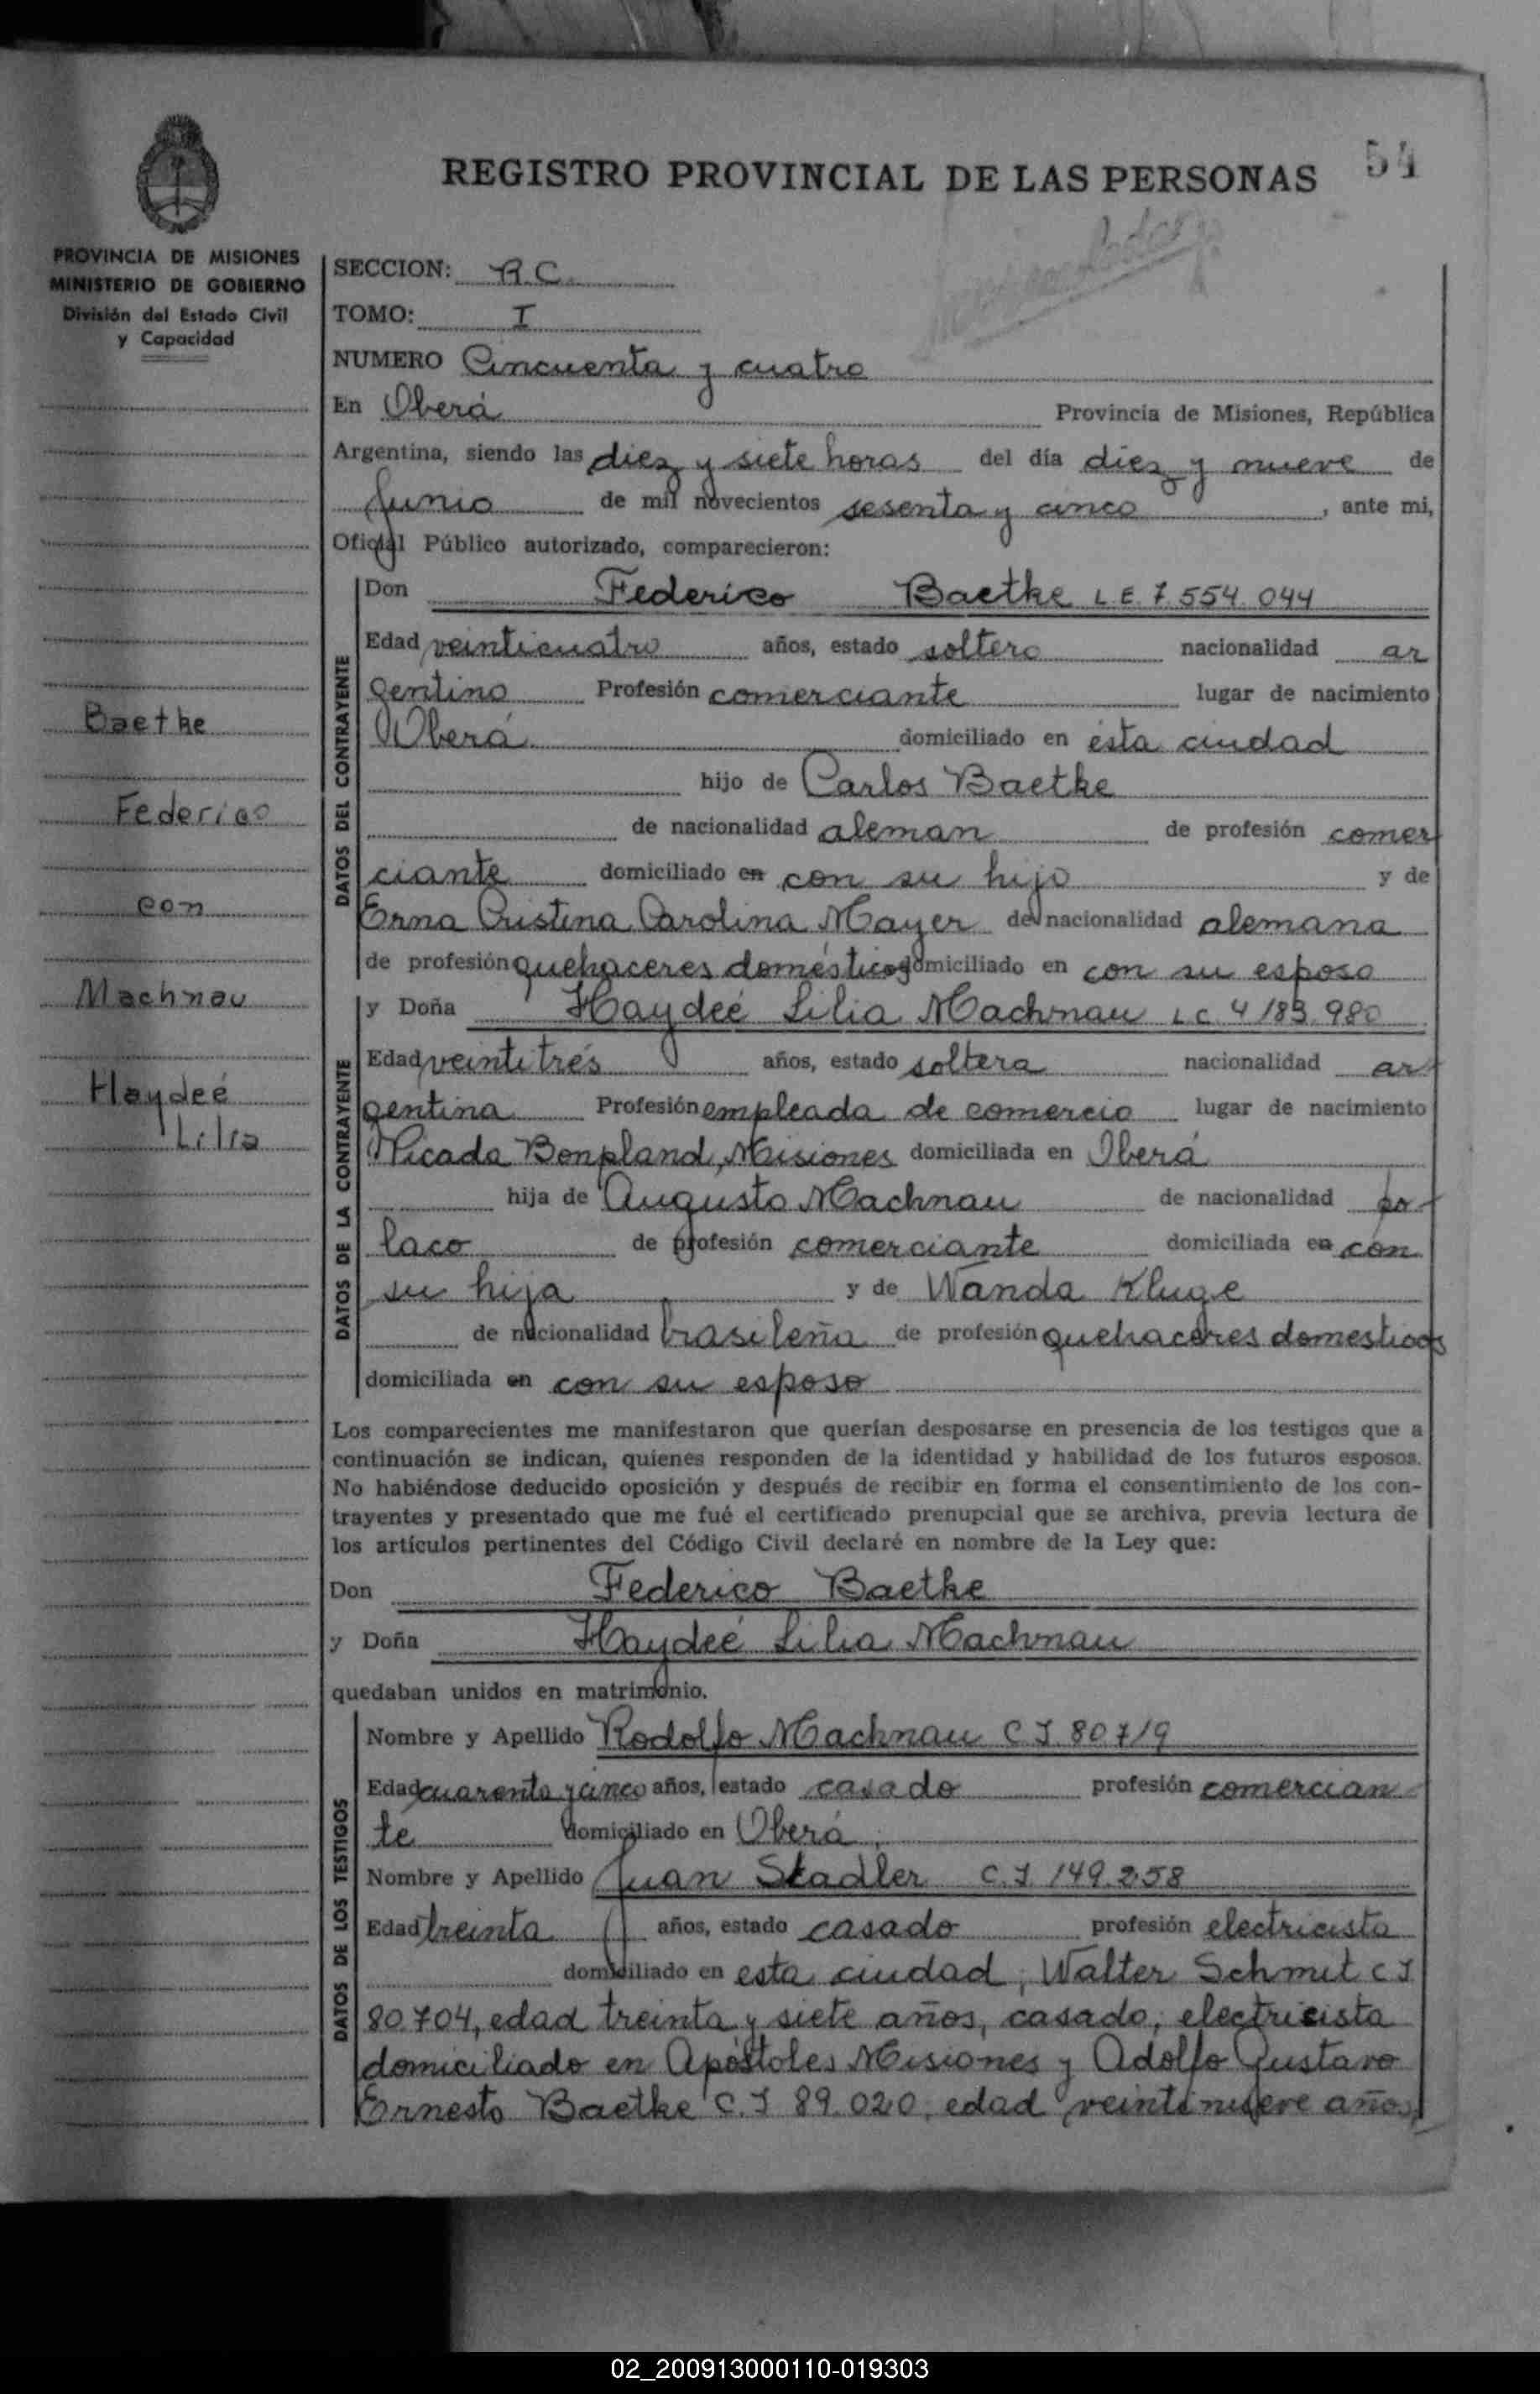 REGISTRO PROVINCIAL DE LAS PERSONAS 54
PROVINCIA DE MISIONES
MINISTERIO DE GOBIERNO
División del Estado Civil
y Capacidad
Baethe
Federico
con
Machnau
Haydeé
Lilia
SECCION: R.C.
TOMO: I
NUMERO Cincuenta y cuatro
En Oberá Provincia de Misiones, República
Argentina, siendo las diez y siete horas del día diez y nueve de
Junio de mil novecientos sesenta y cinco, ante mi,
Oficial Público autorizado, comparecieron:
DATOS DEL CONTRAYENTE
Don Federico Baethe L E. 7.554.044
Edad veinticuatro años, estado soltero nacionalidad ar
gentino Profesión comerciante lugar de nacimiento
Oberá domiciliado en esta ciudad
hijo de Carlos Baethe
de nacionalidad aleman de profesión comer
ciante domiciliado en con su hijo y de
Erna Cristina Carolina Mayer de nacionalidad alemana
de profesión quehaceres domésticos domiciliado en con su esposo
DATOS DE LA CONTRAYENTE
y Doña Haydeé Lilia Machnau L C 4.183.980
Edad veintitrés años, estado soltera nacionalidad ar-
gentina Profesión empleada de comercio lugar de nacimiento
Picada Bonpland, Misiones domiciliada en Oberá
hija de Augusto Machnau de nacionalidad po-
laco de profesión comerciante domiciliada en con
su hija y de Wanda Kluge
de nacionalidad brasileña de profesión quehaceres domesticos
domiciliada en con su esposo
Los comparecientes me manifestaron que querían desposarse en presencia de los testigos que a
continuación se indican, quienes responden de la identidad y habilidad de los futuros esposos.
No habiéndose deducido oposición y después de recibir en forma el consentimiento de los con-
trayentes y presentado que me fué el certificado prenupcial que se archiva, previa lectura de
los artículos pertinentes del Código Civil declaré en nombre de la Ley que:
Don Federico Baethe
y Doña Haydeé Lilia Machnau
quedaban unidos en matrimonio.
DATOS DE LOS TESTIGOS
Nombre y Apellido Rodolfo Machnau C I. 80.719
Edad cuarenta y cinco años, estado casado profesión comercian-
te domiciliado en Oberá,
Nombre y Apellido Juan Stadler C. I 149.258
Edad treinta años, estado casado profesión electricista
domiciliado en esta ciudad, Walter Schmit C I
80.704, edad treinta y siete años, casado, electricista
domiciliado en Apóstoles Misiones y Adolfo Gustavo
Ernesto Baethe C. I 89.020, edad veintinueve años,
02_200913000110-019303